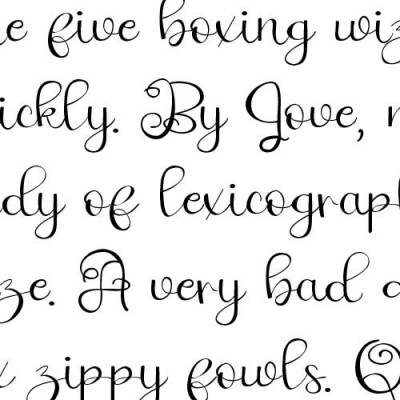 e five boxing wiz
ickly. By Jove, m
udy of lexicograph
ze. A very bad q
x zippy fowls. Q